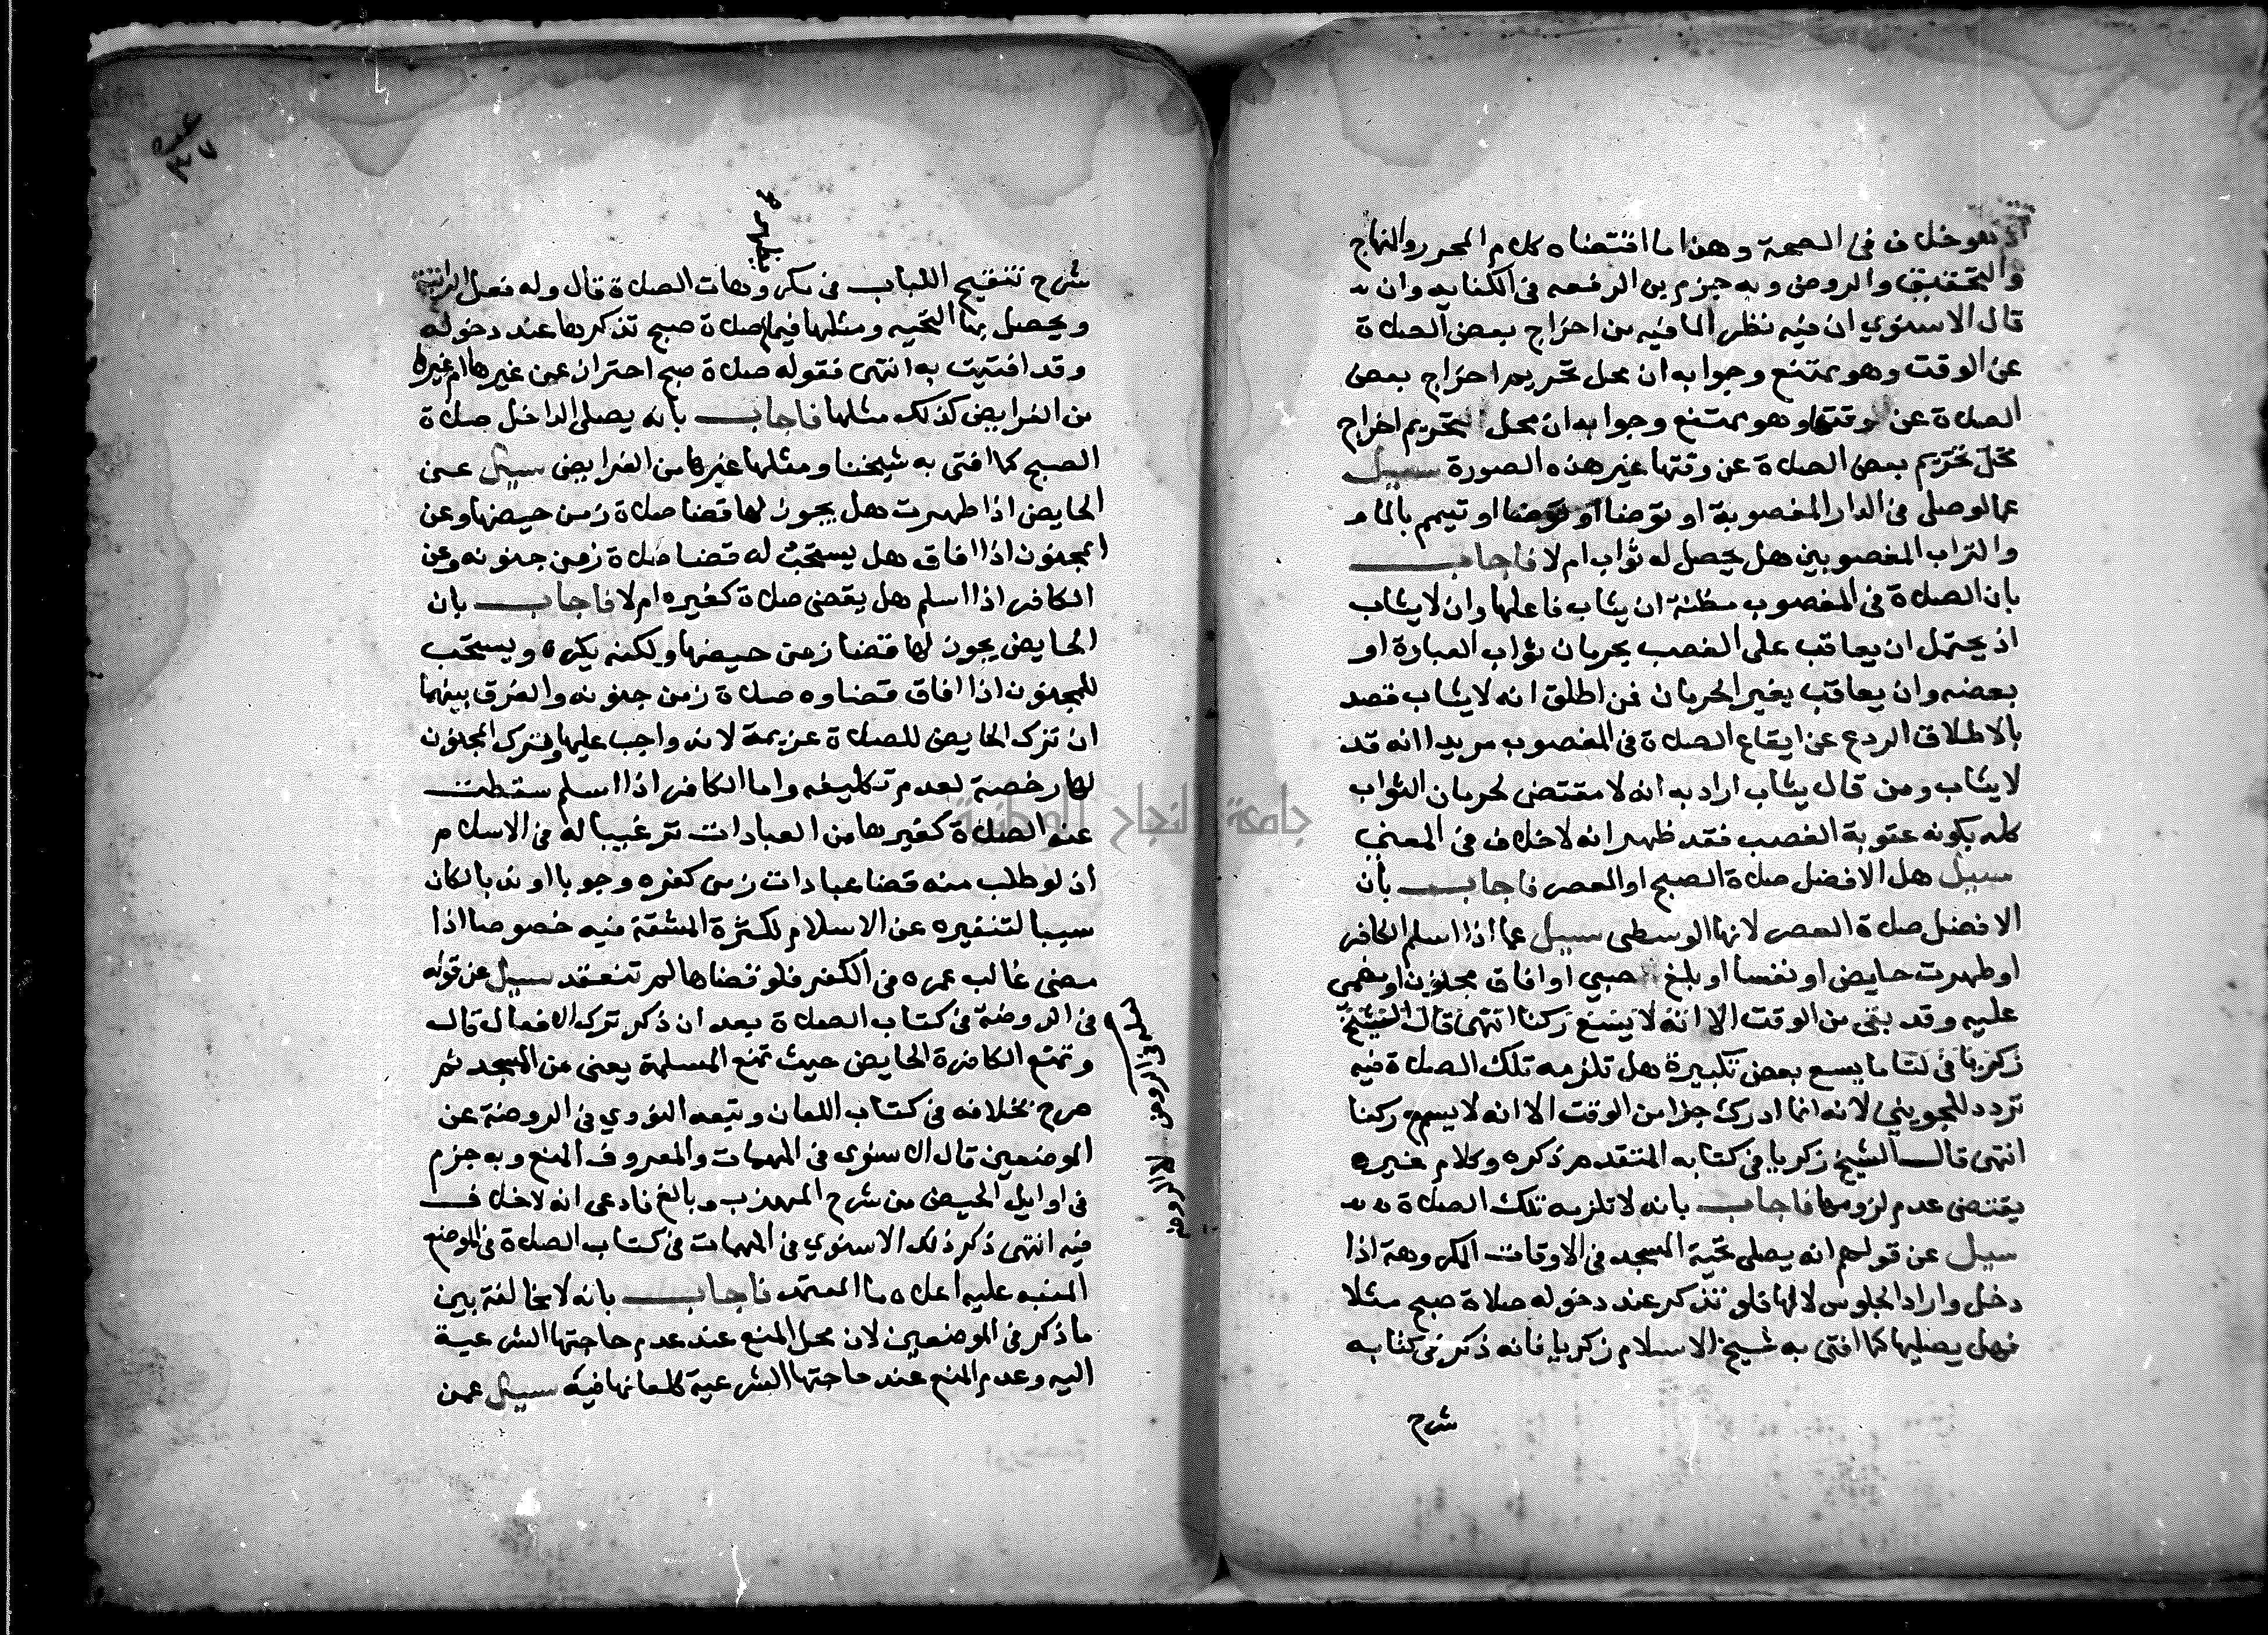 اذ هو خلاف في الصحة وهذا ما اقتضاه كلام المحرر والمنهاج
والتحقيق والروض وبه جزم بن الرفعه في الكفايه وان
قال الاسنوي ان فيه نظر لما فيه من اخراج بعض الصلاة
عن الوقت وهو ممتنع وجوابه ان محل تحريم اخراج بعض
الصلاة عن وقتها وهو ممتنع وجوابه ان محل التحريم اخراج
محل تحريم بعض الصلاة عن وقتها غير هذه الصورة سيل
عما لو صلى في الدار المغصوبة او توضا او توضا او تيمم بالماء
والتراب المغصوبين هل يحصل له ثواب ام لا فاجاب
بان الصلاة في المغصوب مظنة ان يثاب فاعلها وان لا يثاب
اذ يحتمل ان يعاقب على الغصب بحرمان ثواب العبادة او
بعضه وان يعاقب بغير الحرمان فمن اطلق انه لا يثاب قصد
بالاطلاق الردع عن ايقاع الصلاة في المغصوب مريدا انه قد
لا يثاب ومن قال يثاب اراد به انه لا مقتضى لحرمان الثواب
كله بكونه عقوبة الغصب فقد ظهر انه لا خلاف في المعنى
سيل هل الافضل صلاة الصبح او العصر فاجاب بان
الافضل صلاة العصر لانها الوسطى سيل عما اذا اسلم الكافر
او طهرت حايض او نفسا او بلغ الصبي او افاق مجنون او مغمى
عليه وقد بقى من الوقت الا انه لا يسع ركنا انتهى قال الشيخ
زكريا في لتا ما يسع بعض تكبيرة هل تلزمه تلك الصلاة فيه
تردد للجويني لانه انما ادرك جزا من الوقت الا انه لا يسع ركنا
انتهى قال الشيخ زكريا في كتابه المتقدم ذكره وكلام غيره
يقتضى عدم لزومها فاجاب بانه لا تلزمه تلك الصلاة
سيل عن قولهم انه يصلى تحية المسجد في الاوقات المكروهة اذا
دخل واراد الجلوس لا لها فلو تذكر عند دخوله صلاة صبح مثلا
فهل يصليها كما افتى به شيخ الاسلام زكريا فانه ذكر في كتابه
شرح
شرح تنقيح اللباب في مكروهات الصلاة قال وله فعل الراتبة
ويحصل بها التحيه ومثلها فيها صلاة صبح تذكرها عند دخوله
وقد افتيت به انتهى فقوله صلاة صبح احتراز عن غيرها ام غيرها
من الفرايض كذلك مثلها فاجاب بانه يصلى الداخل صلاة
الصبح كما افتى به شيخنا ومثلها غيرها من الفرايض سيل عن
الحايض اذا طهرت هل يجوز لها قضا صلاة زمن حيضها وعن
المجنون اذا افاق هل يستحب له قضا صلاة زمن جنونه وعن
الكافر اذا اسلم هل يقضى صلاة كفره ام لا فاجاب بان
الحايض يجوز لها قضا زمن حيضها ولكنه يكره ويستحب
للمجنون اذا افاق قضاوه صلاة زمن جنونه والفرق بينهما
ان ترك الحايض للصلاة عزيمة لانه واجب عليها وترك المجنون
لها رخصة لعدم تكليفه واما الكافر اذا اسلم سقطت
عنه الصلاة كغيرها من العبادات ترغيبا له في الاسلام
اذ لو طلب منه قضا عبادات زمن كفره وجوبا او ندبا لكان
سببا لتنفيره عن الاسلام لكثرة المشقة فيه خصوصا اذا
مضى غالب عمره في الكفر فلو قضاها لم تنعقد سيل عن قوله
في الروضة في كتاب الصلاة بعد ان ذكر ترك الافعال قال
وتمنع الكافرة الحايض حيث تمنع المسلمة يعنى من المسجد ثم
صرح بخلافه في كتاب اللعان وتبعه النووي في الروضة عن
الموضعين قال الاسنوى في المهمات والمعروف المنع وبه جزم
في اوايل الحيض من شرح المهذب وبالغ فادعى انه لا خلاف
فيه انتهى ذكر ذلك الاسنوي في المهمات في كتاب الصلاة في الموضع
المنبه عليه اعلاه ما المعتمد فاجاب بانه لا مخالفة بين
ما ذكر في الموضعين لان محل المنع عند عدم حاجتها الشرعية
اليه وعدم المنع عند حاجتها الشرعية كلعانها فيه سيل عمن
جامعة النجاح الوطنية